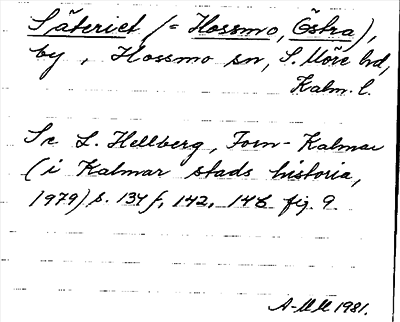 Säteriet (= Hossmo, Östra),
by, Hossmo sn, S. Möre hd,
Kalm. l.
Se L. Hellberg, Forn-Kalmar
(i Kalmar stads historia,
1979) s. 134 f, 142, 148 fig. 9.
A-MM 1981.